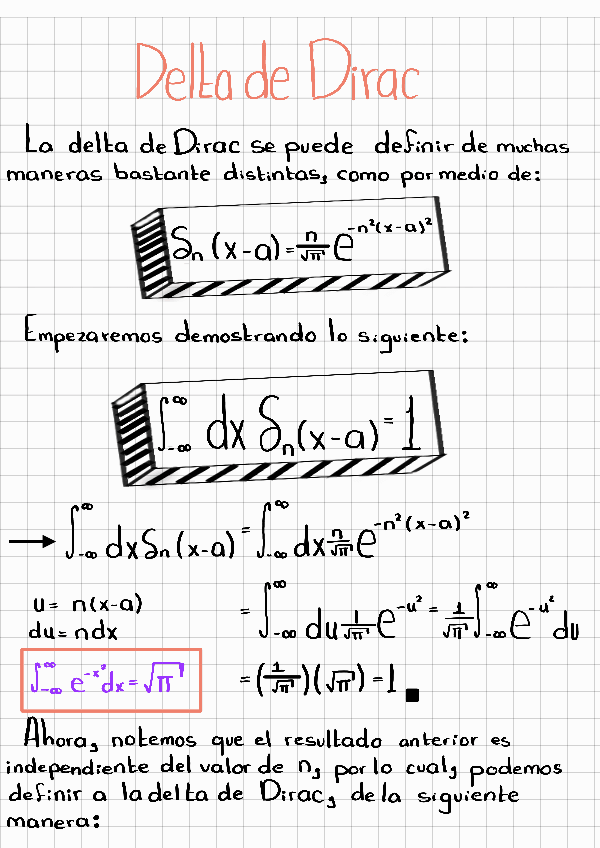 Delta de Dirac
La delta de Dirac se puede definir de muchas
maneras bastante distintas, como por medio de:
δₙ(x-a) = n/√π e^{-n²(x-a)²}
Empezaremos demostrando lo siguiente:
∫_{-∞}^{∞} dx δₙ(x-a) = 1
→ ∫_{-∞}^{∞} dx δₙ(x-a) = ∫_{-∞}^{∞} dx n/√π e^{-n²(x-a)²}
u = n(x-a)
du = ndx
= ∫_{-∞}^{∞} du 1/√π e^{-u²} = 1/√π ∫_{-∞}^{∞} e^{-u²} du
∫_{-∞}^{∞} e^{-x²} dx = √π
= (1/√π)(√π) = 1 ■
Ahora, notemos que el resultado anterior es
independiente del valor de n, por lo cual, podemos
definir a la delta de Dirac, de la siguiente
manera: